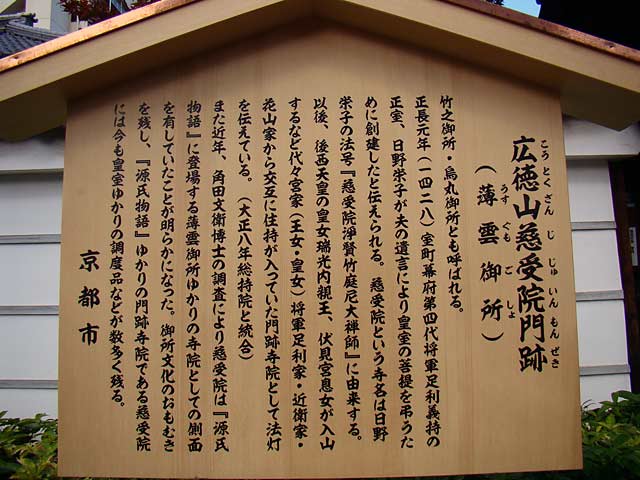 広徳山慈受院門跡
こうとくざんじじゅいんもんぜき
（薄雲御所）
うすぐもごしょ
竹之御所・烏丸御所とも呼ばれる。
正長元年（一四二八）室町幕府第四代将軍足利義持の
正室、日野栄子が夫の遺言により皇室の菩提を弔うた
めに創建したと伝えられる。慈受院という寺名は日野
栄子の法号『慈受院浄賢竹庭尼大禅師』に由来する。
以後、後西天皇の皇女瑞光内親王、伏見宮息女が入山
するなど代々宮家（王女・皇女）将軍足利家・近衛家・
花山家から交互に住持が入っていた門跡寺院として法灯
を伝えている。（大正八年総持院と統合）
また近年、角田文衛博士の調査により慈受院は『源氏
物語』に登場する薄雲御所ゆかりの寺院としての側面
を有していたことが明らかになった。御所文化のおもむき
を残し、『源氏物語』ゆかりの門跡寺院である慈受院
には今も皇室ゆかりの調度品などが数多く残る。
京都市